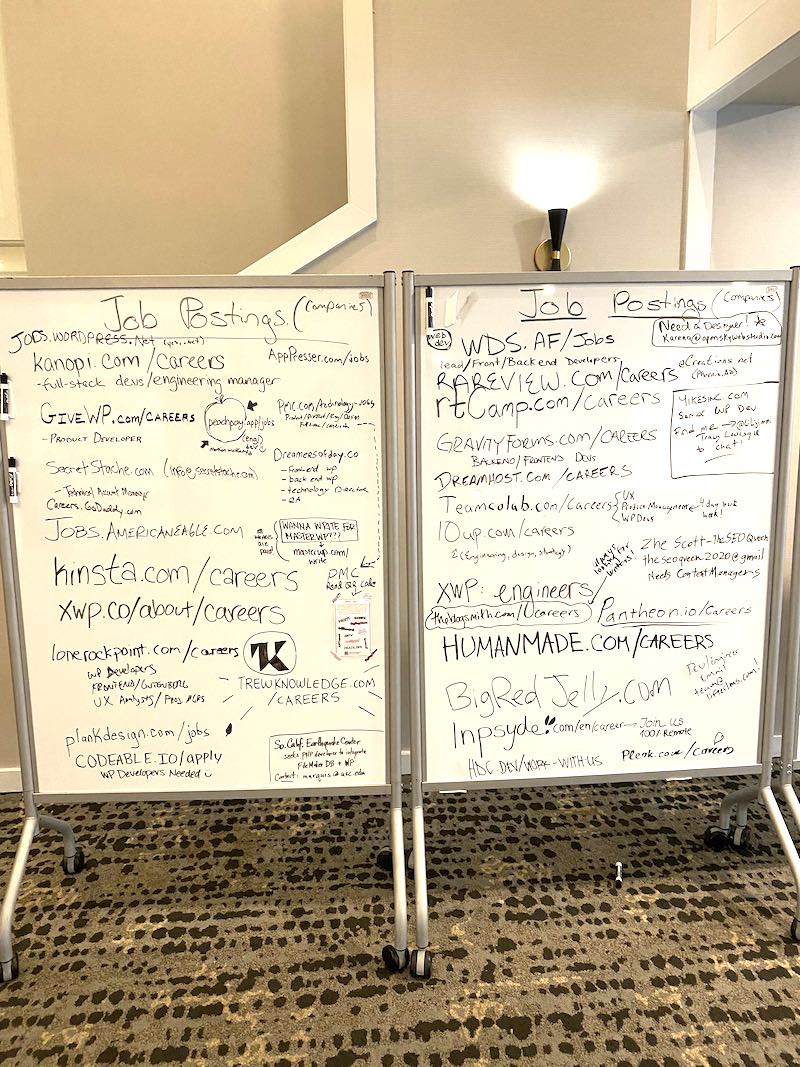 Job Postings. (Companies)
JOBS.WORDPRESS.Net
kanopi.com/careers
-full-stack devs/engineering manager
AppPresser.com/jobs
GiveWP.com/CAREERS
- PRODUCT DEVELOPER
peachpay.app/jobs
(eng)
PMC.com/technology-jobs
SecretStache.com (info@secretstache.com)
- Technical Account Manager
Careers.GoDaddy.com
Dreamersofday.co
- front-end wp
- back end wp
- technology Director
- QA
JOBS.AMERICANEAGLE.COM
WRITERS
are
paid!
WANNA WRITE FOR
MASTERWP???
masterwp.com/
write
kinsta.com/careers
PMC
Read QR code
xwp.co/about/careers
lonerockpoint.com/careers
WP Developers
FRONTEND/GUTENBERG
UX Analysts/Proj MGRS
TK
TREWKNOWLEDGE.COM
/CAREERS
plankdesign.com/jobs
CODEABLE.IO/apply
WP Developers Needed
So. Calif. Earthquake Center
seeks PHP developer to integrate
FileMaker DB + WP
Contact: marquis@usc.edu
Job Postings (Companies)
web
dev
WDS.AF/Jobs
Lead/Front/Back end Developers
Need a Designer?
Karena@opmskywebstudio.com
RAREVIEW.COM/Careers
eCreations.net
(Phoenix, AZ)
rtCamp.com/careers
YIKESINC.com
Senior WP Dev
Find me
Tracy Levesque
to chat!
GRAVITYFORMS.COM/CAREERS
BACKEND/FRONTEND DEVS
DREAMHOST.COM/CAREERS
Teamcolab.com/Careers
UX
Product Management
WP Devs
4 day work
week!
10up.com/careers
(Engineering, design, strategy)
always
looking for
writers!
Zhe Scott-TheSEOQueen
theseoqueen2020@gmail
Needs Content Managers
XWP: engineers
theblogsmith.com/careers
Pantheon.io/Careers
HUMANMADE.COM/CAREERS
BigRed Jelly.com
Dev/Engineer
Email
Inpsyde.com/en/career → Join us
100% Remote
HDC.DEV/WORK-WITH-US
Plerk.com/careers